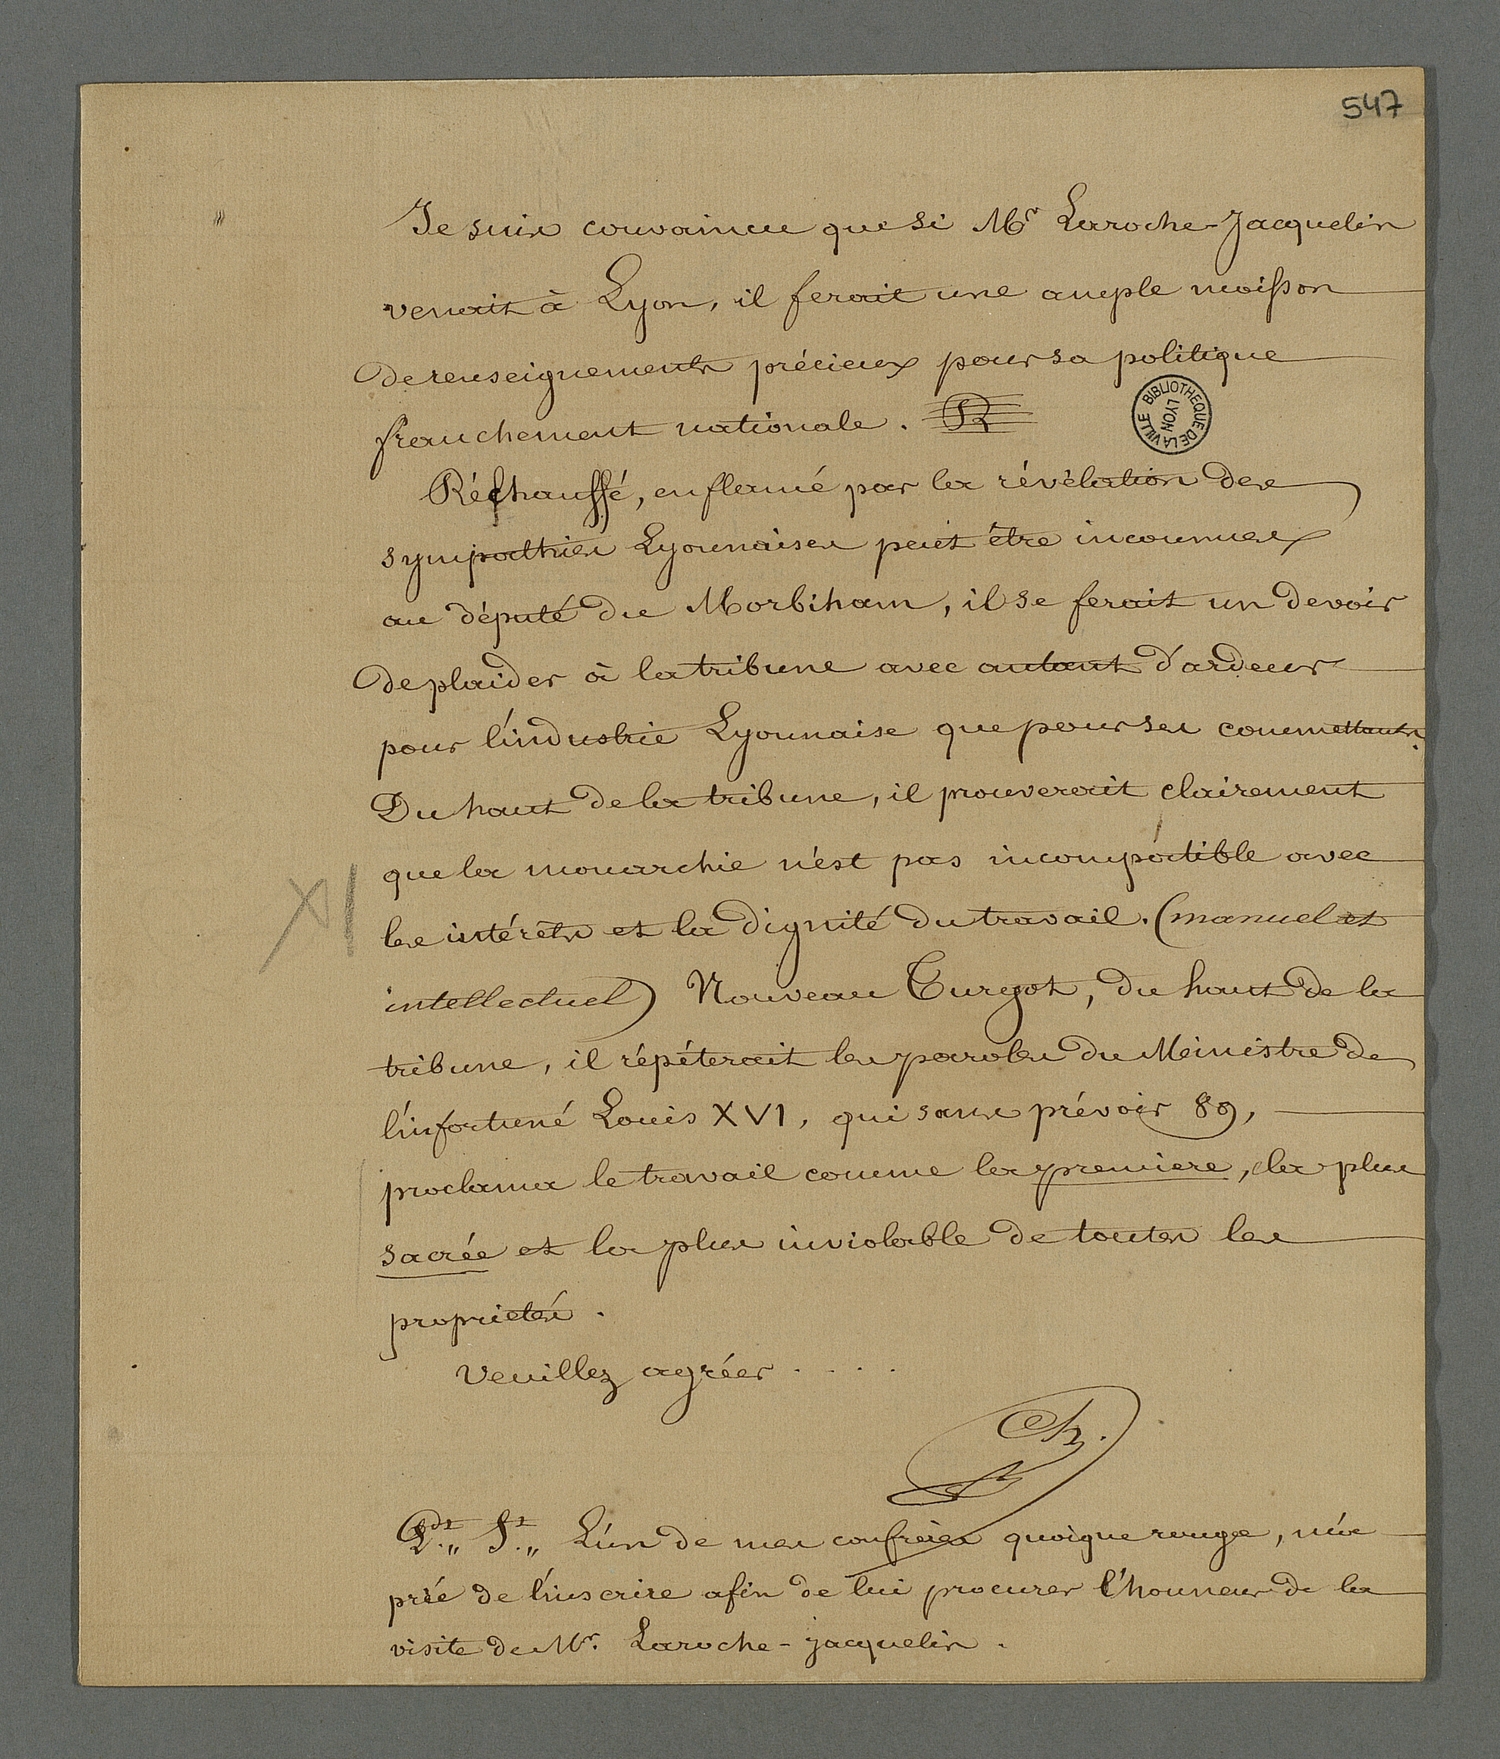 547
Je suis convaincu que si Mr Laroche-Jacquelin
venait à Lyon, il ferait une ample moisson
de renseignements précieux pour sa politique
franchement nationale.
BIBLIOTHEQUE DE LA VILLE LYON
Réchauffé, enflamé par la révélation des
sympathies Lyonnaises peut être inconnues
au député du Morbiham, il se ferait un devoir
de plaider à la tribune avec autant d'ardeur
pour l'industrie Lyonnaise que pour ses commettants.
Du haut de la tribune, il prouverait clairement
que la monarchie n'est pas incompatible avec
XI
les intérêts et la dignité du travail. (manuel et
intellectuel) Nouveau Turgot, du haut de la
tribune, il répéterait les paroles du Ministre de
l'infortuné Louis XVI, qui sans prévoir 89,
proclama le travail comme la premiere, la plus
sacrée et la plus inviolable de toutes les
propriétés.
Veuillez agréer . . . .
Ch.
L'un de mes confrères quoique rouge, m'a
prié de l'inscrire afin de lui procurer l'honneur de la
visite de Mr. Laroche-jacquelin.